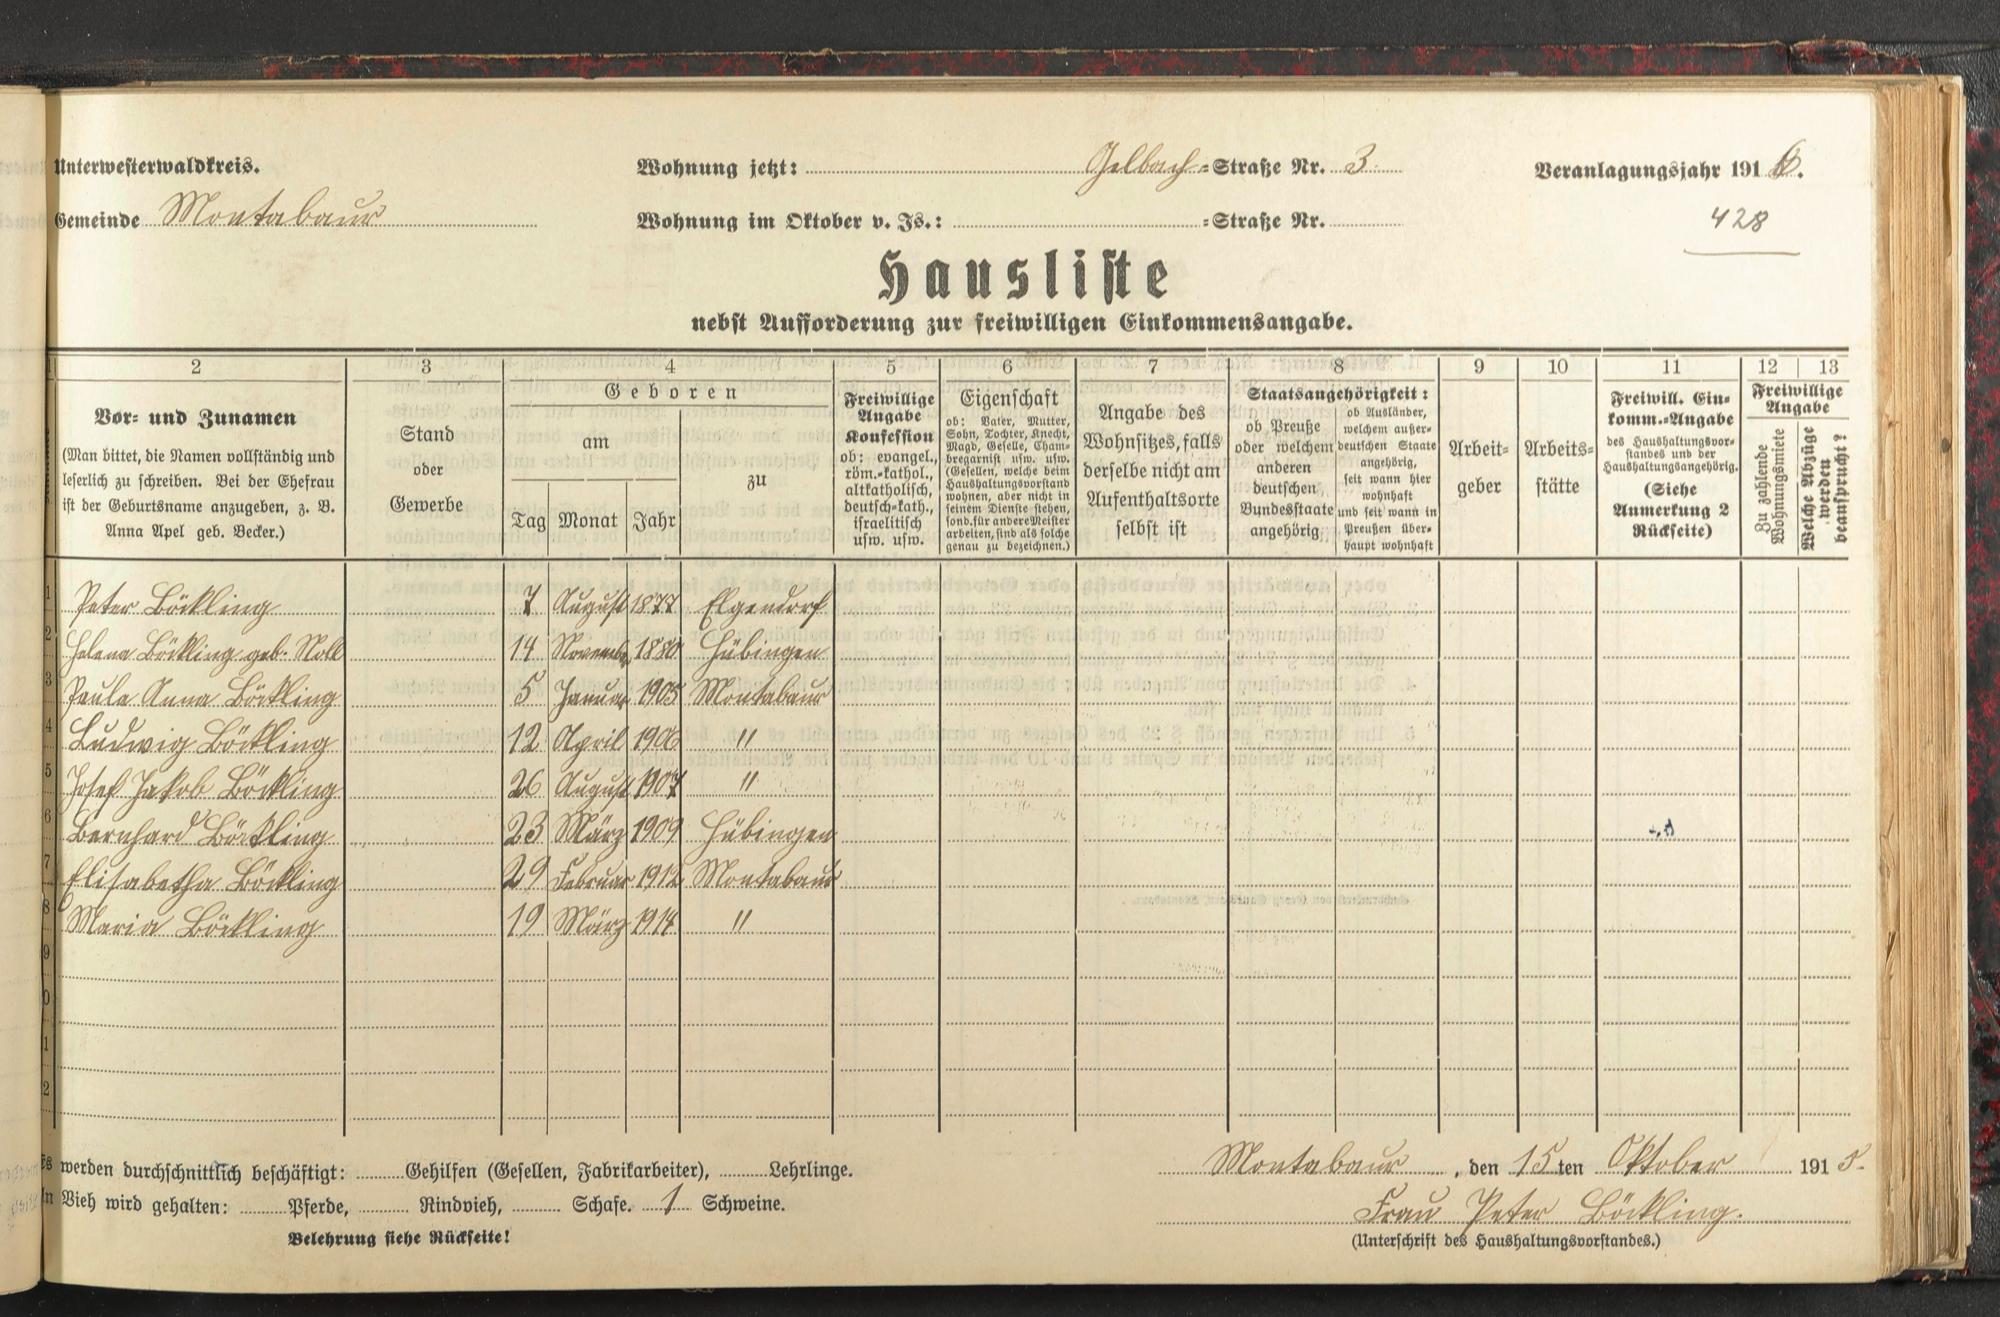 Unterwesterwaldkreis.
Wohnung jetzt: Gelbach-Straße Nr. 3.
Veranlagungsjahr 1916.
Gemeinde Montabaur
Wohnung im Oktober v. Js.: -Straße Nr.
428
Hausliste
nebst Aufforderung zur freiwilligen Einkommensangabe.
2 3 4 5 6 7 8 9 10 11 12 13
Vor- und Zunamen
(Man bittet, die Namen vollständig und
leserlich zu schreiben. Bei der Ehefrau
ist der Geburtsname anzugeben, z. B.
Anna Apel geb. Becker.)
Stand
oder
Gewerbe
Geboren
am
Tag Monat Jahr
zu
Freiwillige
Angabe
Konfession
ob: evangel.,
röm.-kathol.,
altkatholisch,
deutsch-kath.,
israelitisch
usw. usw.
Eigenschaft
ob: Vater, Mutter,
Sohn, Tochter, Knecht,
Magd, Geselle, Cham-
bregarnist usw. usw.
(Gesellen, welche beim
Haushaltungsvorstand
wohnen, aber nicht in
seinem Dienste stehen,
sond. für andere Meister
arbeiten, sind als solche
genau zu bezeichnen.)
Angabe des
Wohnsitzes, falls
derselbe nicht am
Aufenthaltsorte
selbst ist
Staatsangehörigkeit:
ob Preuße
oder welchem
anderen
deutschen
Bundesstaate
angehörig
ob Ausländer,
welchem außer-
deutschen Staate
angehörig,
seit wann hier
wohnhaft
und seit wann in
Preußen über-
haupt wohnhaft
Arbeit-
geber
Arbeits-
stätte
Freiwill. Ein-
komm.-Angabe
des Haushaltungsvor-
standes und der
Haushaltungsangehörig.
(Siehe
Anmerkung 2
Rückseite)
Freiwillige
Angabe
Zu zahlende
Wohnungsmiete
Welche Abzüge
werden
beansprucht?
1 Peter Böckling 7 August 1877 Elgendorf
2 Helena Böckling geb. Noll 14 Novembe 1880 Hübingen
3 Paula Anna Böckling 5 Januar 1905 Montabaur
4 Ludwig Böckling 12 April 1906 "
5 Josef Jakob Böckling 26 August 1907 "
6 Bernhard Böckling 23 März 1909 Hübingen
7 Elisabetha Böckling 29 Februar 1912 Montabaur
8 Maria Böckling 19 März 1914 "
9
0
1
2
Es werden durchschnittlich beschäftigt: Gehilfen (Gesellen, Fabrikarbeiter), Lehrlinge.
Montabaur, den 15ten Oktober 1915.
An Vieh wird gehalten: Pferde, Rindvieh, Schafe. 1 Schweine.
Frau Peter Böckling.
Belehrung siehe Rückseite!
(Unterschrift des Haushaltungsvorstandes.)